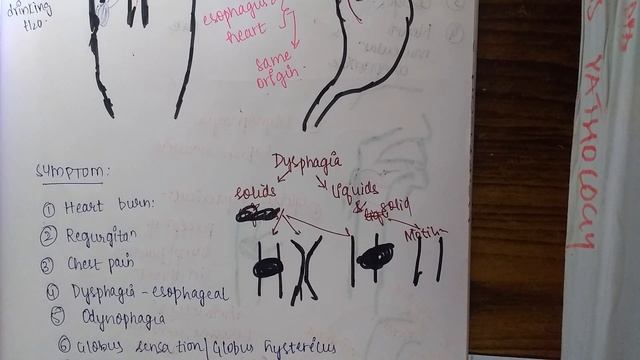 drinking
H20.
esophagus
heart
same
origin.
SYMPTOM:
① Heart burn:
② Regurgitan
③ Chest pain
④ Dysphagia - esophageal
⑤ Odynophagia
⑥ Globus sensation/Globus hystericus
Dysphagia
solids
liquids
solid
YATHOLOGY